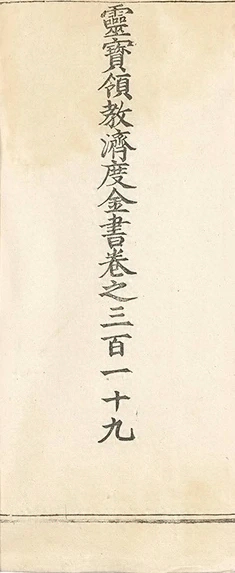 靈寶領教濟度金書卷之三百一十九